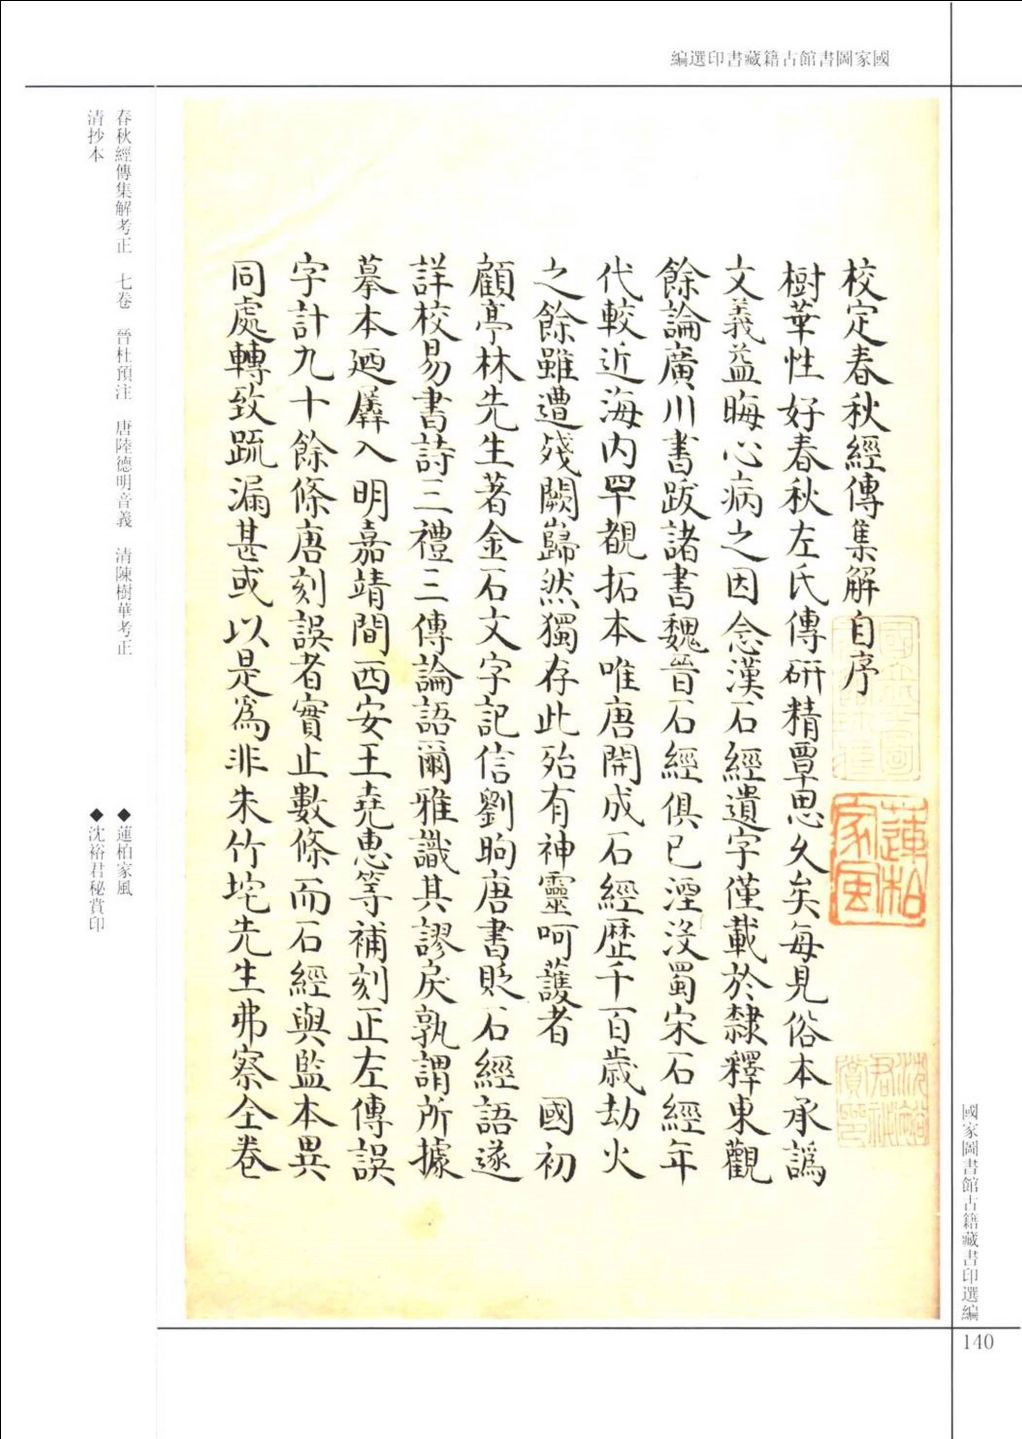 國家圖書館古籍藏書印選編
校定春秋經傳集解自序
樹華性好春秋左氏傳研精覃思久矣每見俗本承譌
文義益晦心病之因念漢石經遺字僅載於隸釋東觀
餘論廣川書跋諸書魏晉石經俱已湮沒蜀宋石經年
代較近海內罕覩拓本唯唐開成石經歷千百歲劫火
之餘雖遭殘闕巋然獨存此殆有神靈呵護者 國初
顧亭林先生著金石文字記信劉昫唐書貶石經語遂
詳校易書詩三禮三傳論語爾雅識其謬戾孰謂所據
摹本廼羼入明嘉靖間西安王堯惠等補刻正左傳誤
字計九十餘條唐刻誤者實止數條而石經與監本異
同處轉致疏漏甚或以是為非朱竹垞先生弗察全卷
蓮柏家風
沈裕君祕賞印
春秋經傳集解考正 七卷 晉杜預注 唐陸德明音義 清陳樹華考正
清抄本
◆蓮柏家風
◆沈裕君秘賞印
國家圖書館古籍藏書印選編
140